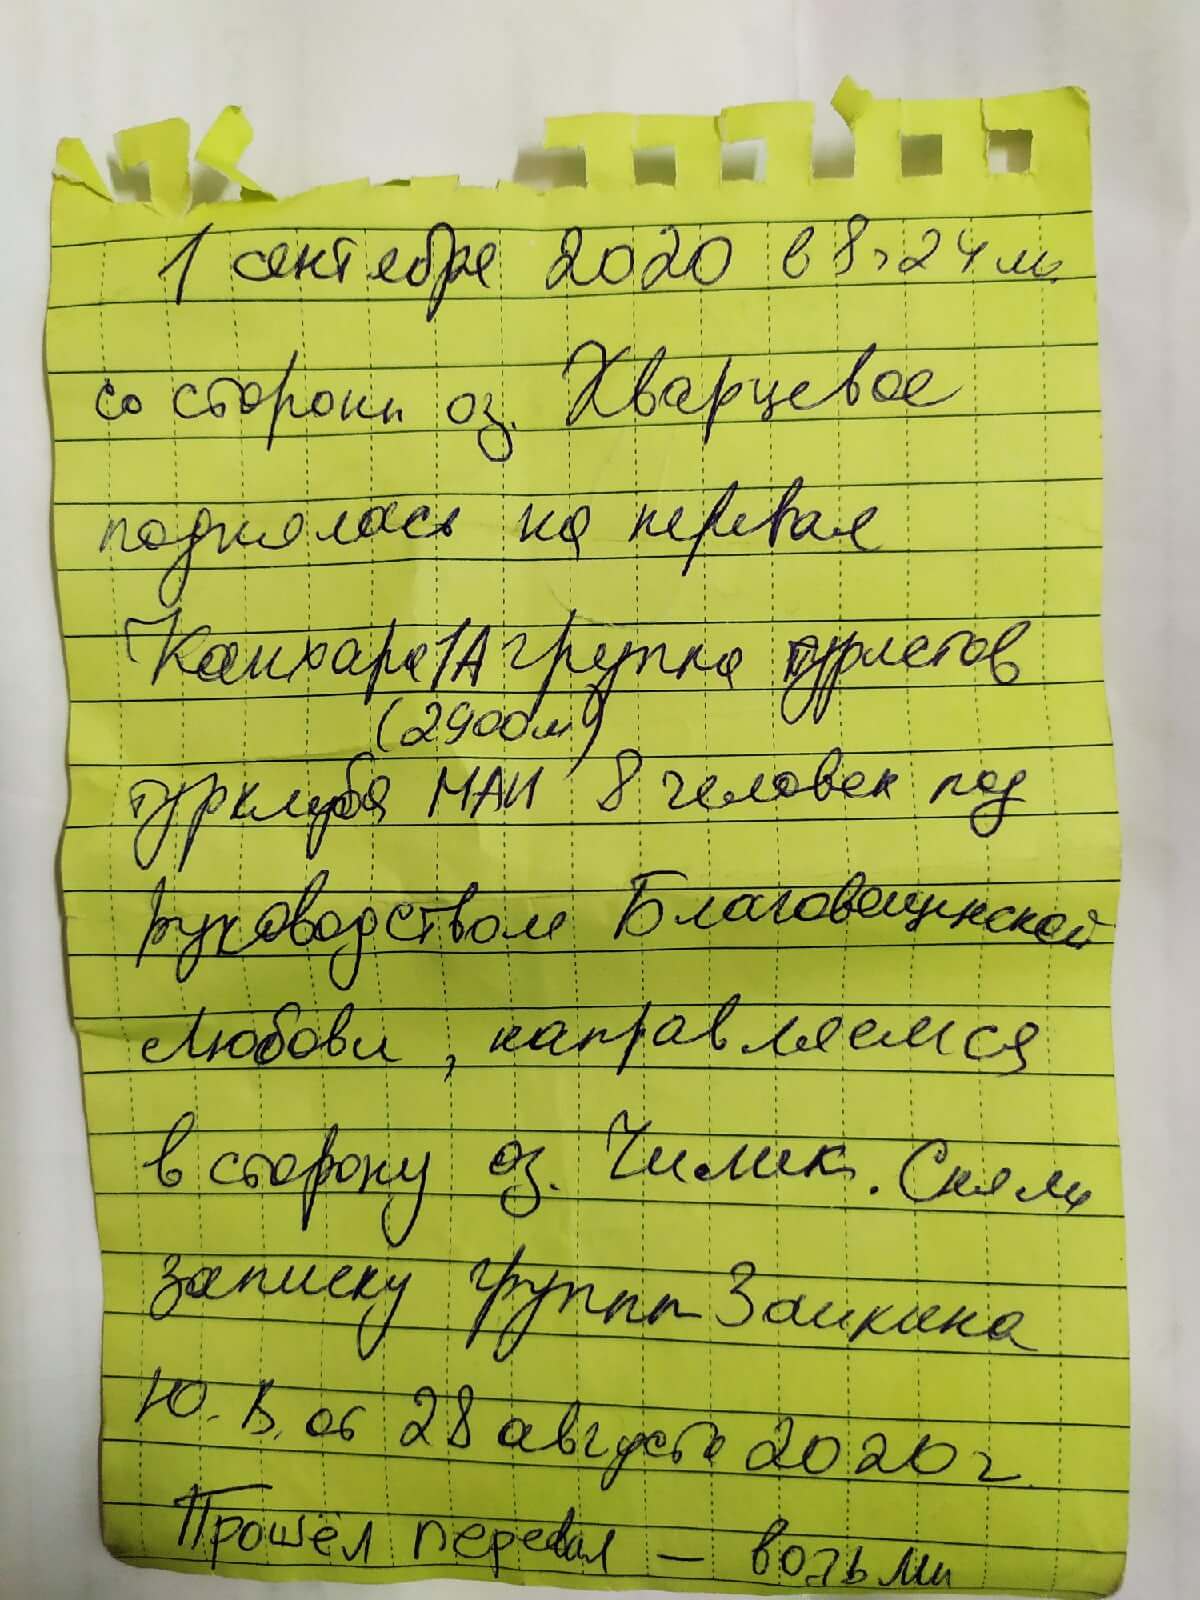 1 сентября 2020 в 8ч 24 м.
со стороны оз. Кварцевое
поднялась на перевал
Канхара 1А группа туристов
(2900м)
турклуба МАИ 8 человек под
руководством Благовещенской
Любови, направляемся
в сторону оз. Чилик. Сняли
записку группы Заикина
Ю.В. от 28 августа 2020 г
Прошёл перевал — возьми